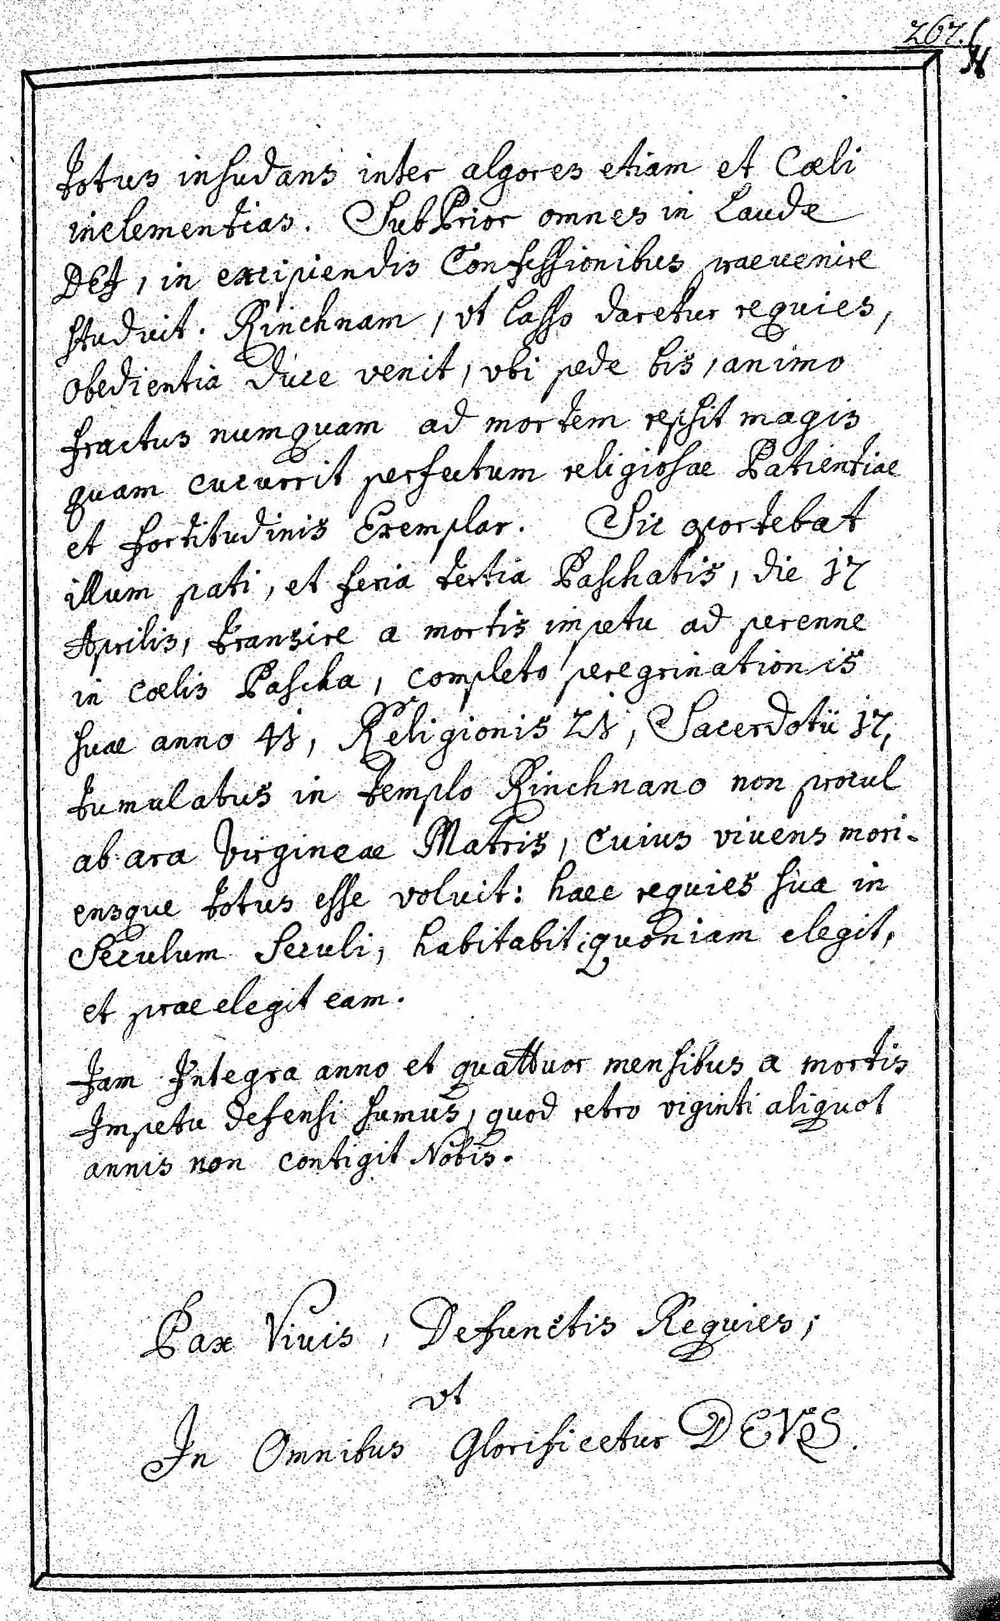 267.
totus insudans inter algores etiam et Coeli
inclementias. SubPrior omnes in Laude
DEI, in excipiendis Confessionibus praevenire
studuit. Rinchnam, vt lasso daretur requies,
obedientia duce venit, vbi pede bis, animo
fractus numquam ad mortem repsit magis
quam cucurrit perfectum religiosae Patientiae
et fortitudinis Exemplar. Sic oportebat
illum pati, et feria tertia Paschatis, die 17
Aprilis, transire a mortis impetu ad perenne
in coelis Pascha, completo peregrinationis
suae anno 41, Religionis 21, Sacerdotii 17,
tumulatus in templo Rinchnano non procul
ab ara Virgineae Matris, cuius vivens mori-
ensque totus esse voluit: haec requies sua in
Seculum Seculi, habitabit, quoniam elegit,
et praeelegit eam.
Iam Integra anno et quattuor mensibus a mortis
Impetu defensi sumus, quod retro viginti aliquot
annis non contigit Nobis.
Pax Vivis, Defunctis Requies;
vt
In Omnibus Glorificetur DEVS.